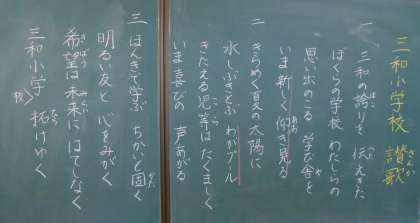 三和小学校 讃歌
さか
一 三和の誇りを 伝えきた
ぼくらの学校 わたしらの
思い出のこる 学び舎を
や
いま新しく 仰ぎ見る
あお
二 きらめく夏の 太陽に
水しぶきとぶ わがプール
きたえる児等は たくましく
こら
いま喜びの 声あがる
三 ほんきで学ぶ ちかいも固く
かた
明るい友と 心をみがく
希望は未来に はてしなく
きぼう みらい
三和小学校 拓けゆく